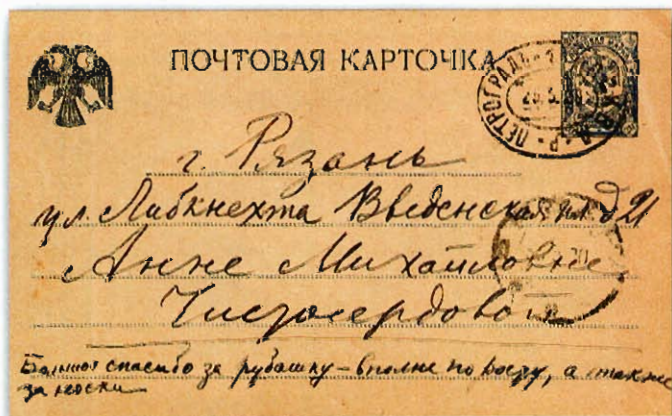 ПОЧТОВАЯ КАРТОЧКА
ПЕТРОГРАДЪ
г. Рязань
ул. Либкнехта Введенская д 21
Анне Михайловне
Чистосердовой
Большое спасибо за рубашку – вполне по росту, а также
за носки